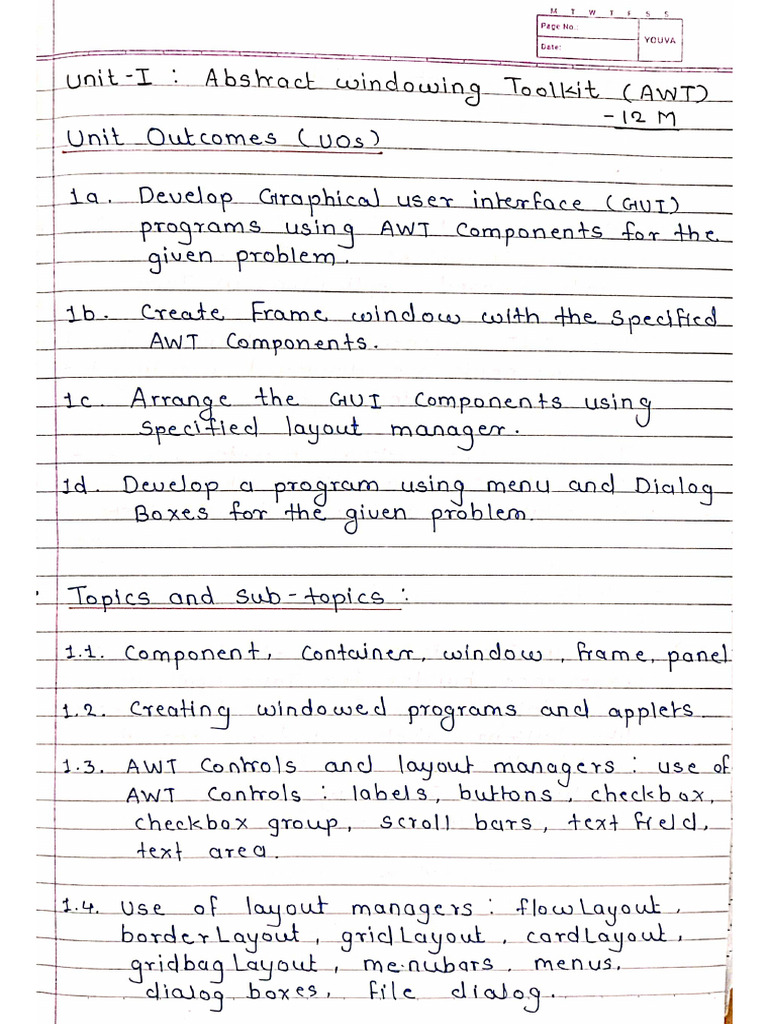 M T W T F S S
Page No.:
Date:
YOUVA
Unit-I : Abstract windowing Toolkit (AWT)
-12 M
Unit Outcomes (UOs)
1a. Develop Graphical user interface (GUI)
programs using AWT Components for the
given problem.
1b. Create Frame window with the specified
AWT Components.
1c. Arrange the GUI Components using
specified layout manager.
1d. Develop a program using menu and Dialog
Boxes for the given problem.
Topics and sub-topics :
1.1. Component, Container, window, frame, panel
1.2. Creating windowed programs and applets
1.3. AWT Controls and layout managers : use of
AWT Controls : labels, buttons, checkbox,
checkbox group, scroll bars, text field,
text area.
1.4. Use of layout managers : flowLayout,
borderLayout, gridLayout, cardLayout,
gridbagLayout, menubars, menus,
dialog boxes, file dialog.